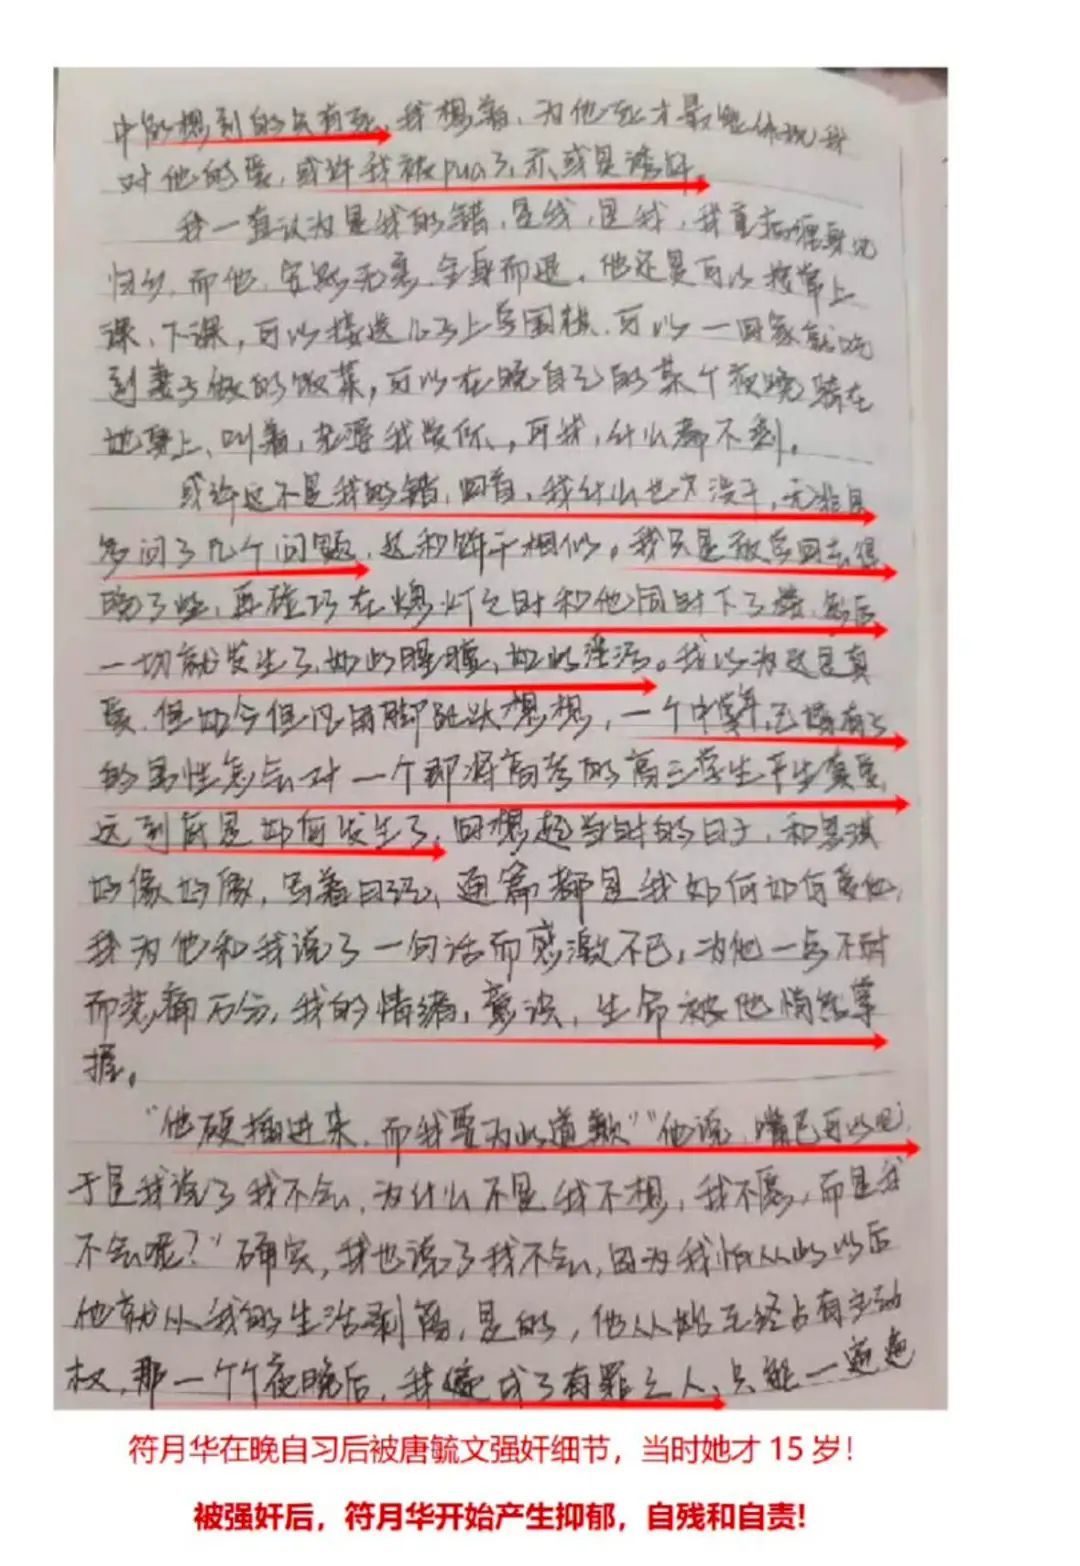 中能想到的只有死,我想着,为他死才最能体现我
对他的爱,或许我被pua了,亦或是诱奸。
我一直认为是我的错,是我,是我,我直
归,而他,安然无恙,全身而退,他还是可以接常上
课、下课,可以接送儿子上学围棋,可以一回家就吃
到妻子做的饭菜,可以在晚自习的某个夜晚骑在
她身上,叫着,老婆我爱你,可我,什么都不剩。
或许这不是我的错,回首,我什么也没干,无非是
多问了几个问题,这和饼干相似。我只是放学回去得
晚了些,再碰巧在熄灯之时和他同时下了楼,然后
一切就发生了,如此腥膻,如此淫活。我以为这是真
爱,但如今但凡用脚趾头想想,一个中年已婚有子
的男性怎么对一个即将高考的高三学生产生真爱,
这到底是如何发生了,回想起当时的日子,和思琪
好像好像,写着日记,通篇都是我如何如何爱他,
我为他和我说了一句话而感激不已,为他一点不耐
而悲痛万分,我的情绪,意识,生命被他悄然掌
握。
“他硬插进来,而我要为此道歉”“他说,嘴巴可以吧,
于是我说了我不会,为什么不是我不想,我不愿,而是我
不会呢?”确实,我也说了我不会,因为我怕从此以后
他就从我的生活剥离,是的,他从始至终占有主动
权,那一个个夜晚后,我便成了有罪之人,只能一遍遍
符月华在晚自习后被唐毓文强奸细节，当时她才 15 岁！
被强奸后，符月华开始产生抑郁，自残和自责！